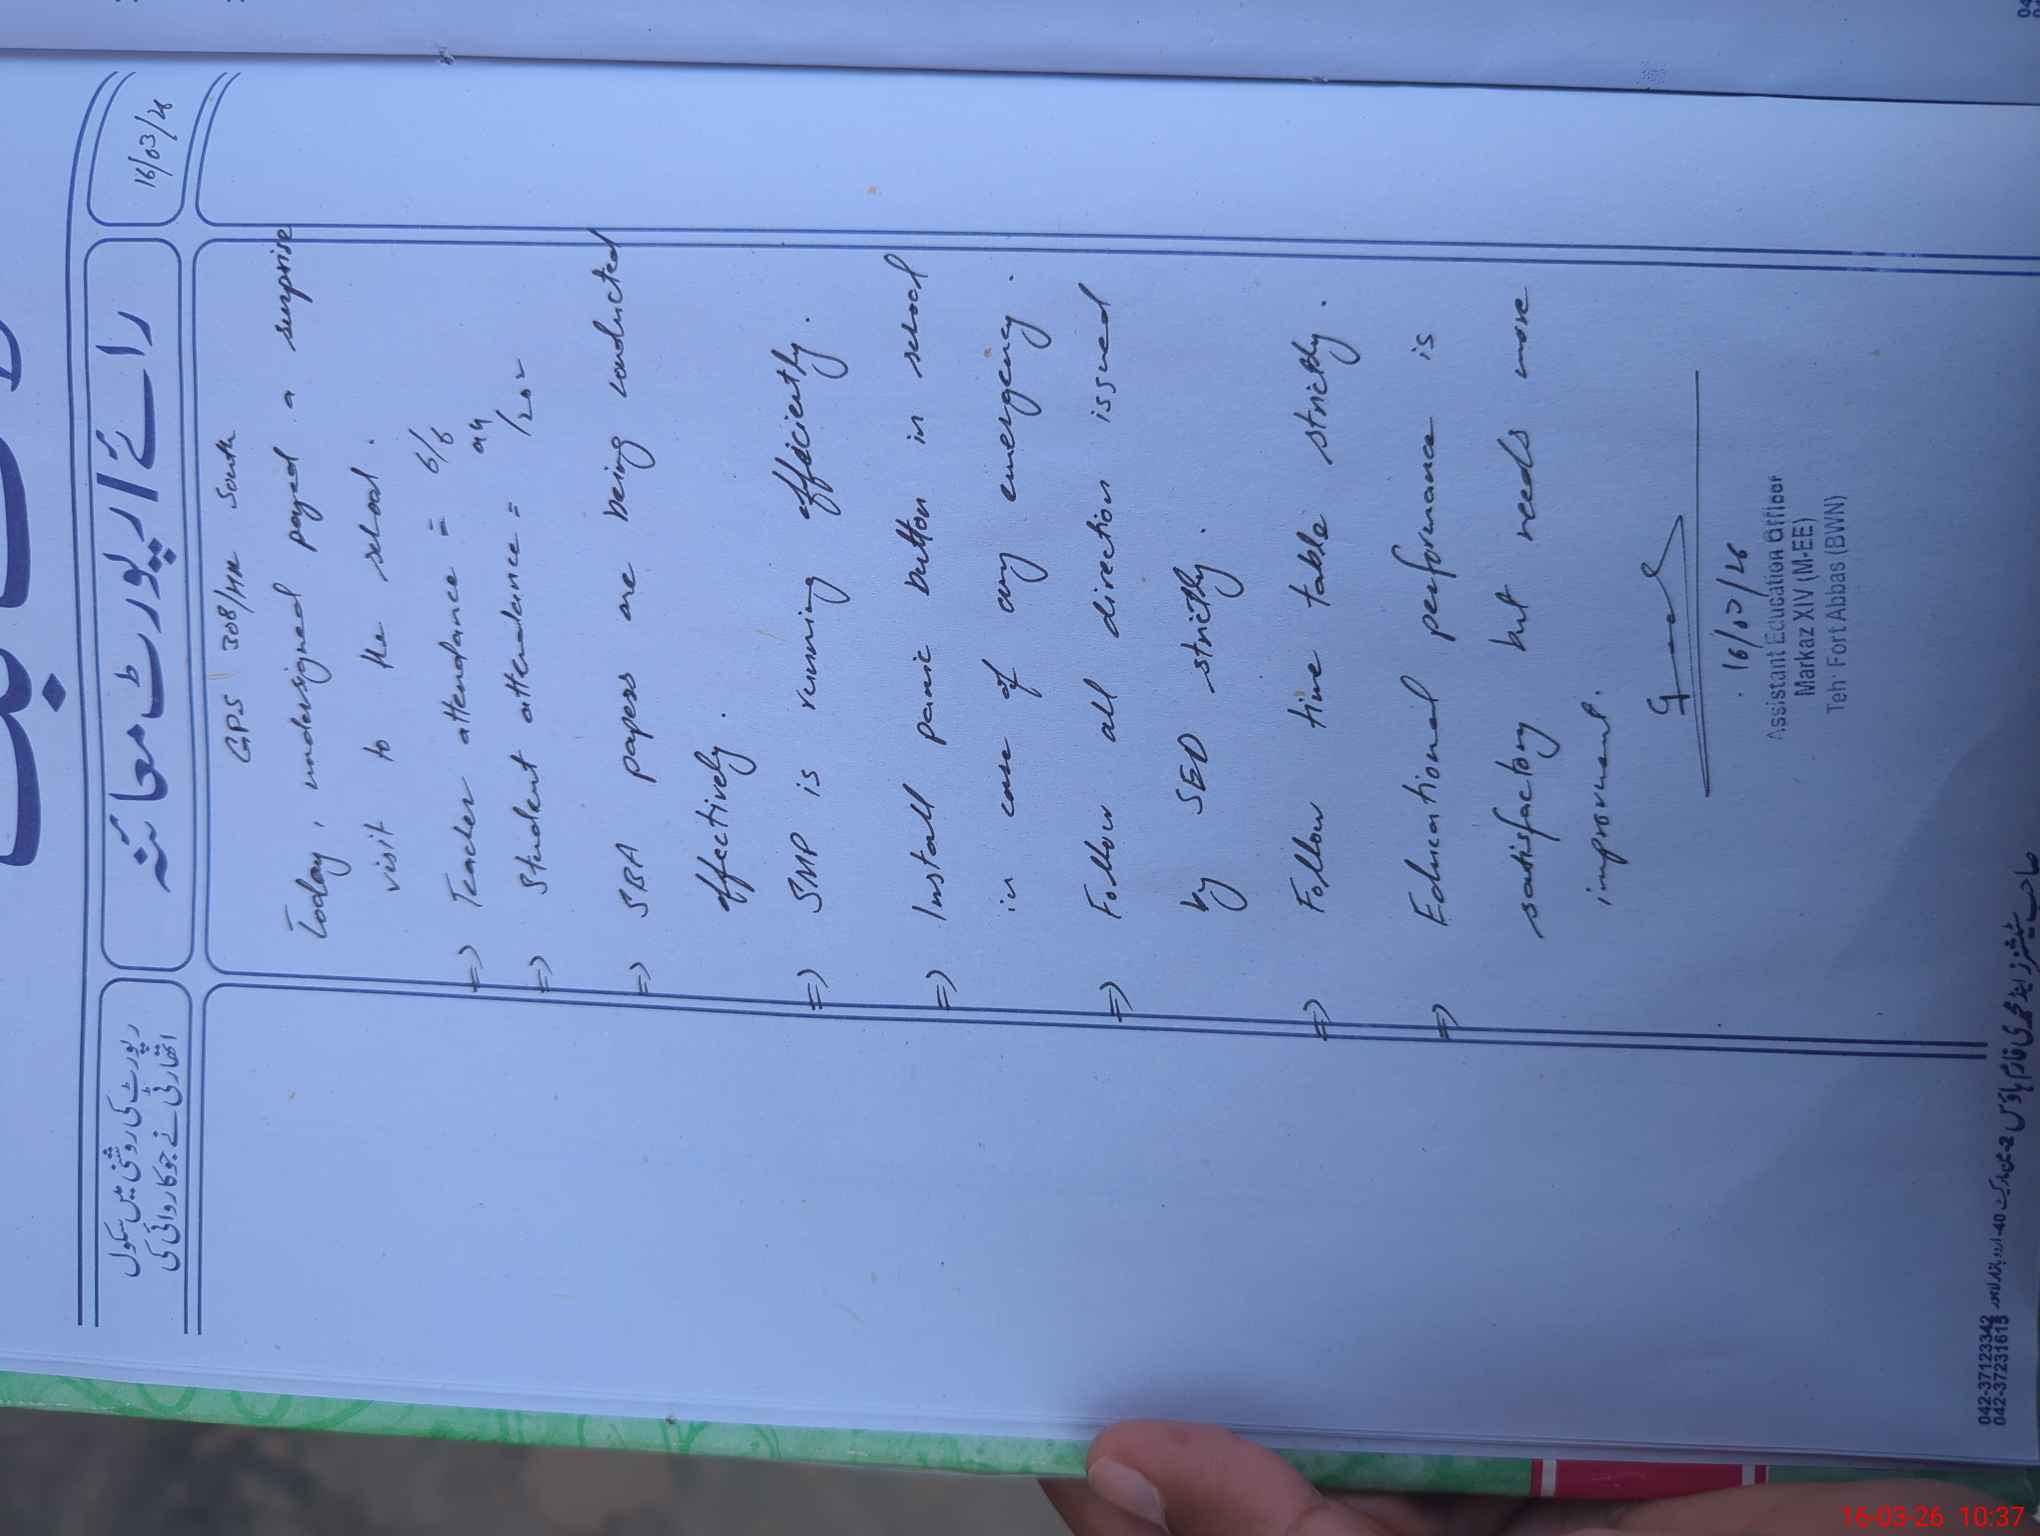 16/03/26
رائے / رپورٹ معائنہ
رپورٹ کی روشنی میں سکول
اتھارٹی نے جو کاروائی کی
GPS 308/HR South
Today, undersigned payed a surprise
visit to the school.
⇒ Teacher attendance = 6/6
⇒ Student attendance = 94/202
⇒ SBA papers are being conducted
effectively.
⇒ SMP is running efficiently.
⇒ Install panic button in school
in case of any emergency.
⇒ Follow all direction issued
by SED strictly.
⇒ Follow time table strictly.
⇒ Educational performance is
satisfactory but needs more
improvement.
16/03/26
Assistant Education Officer
Markaz XIV (M-EE)
Teh: Fort Abbas (BWN)
042-37123342
042-37231615
16-03-26 10:37